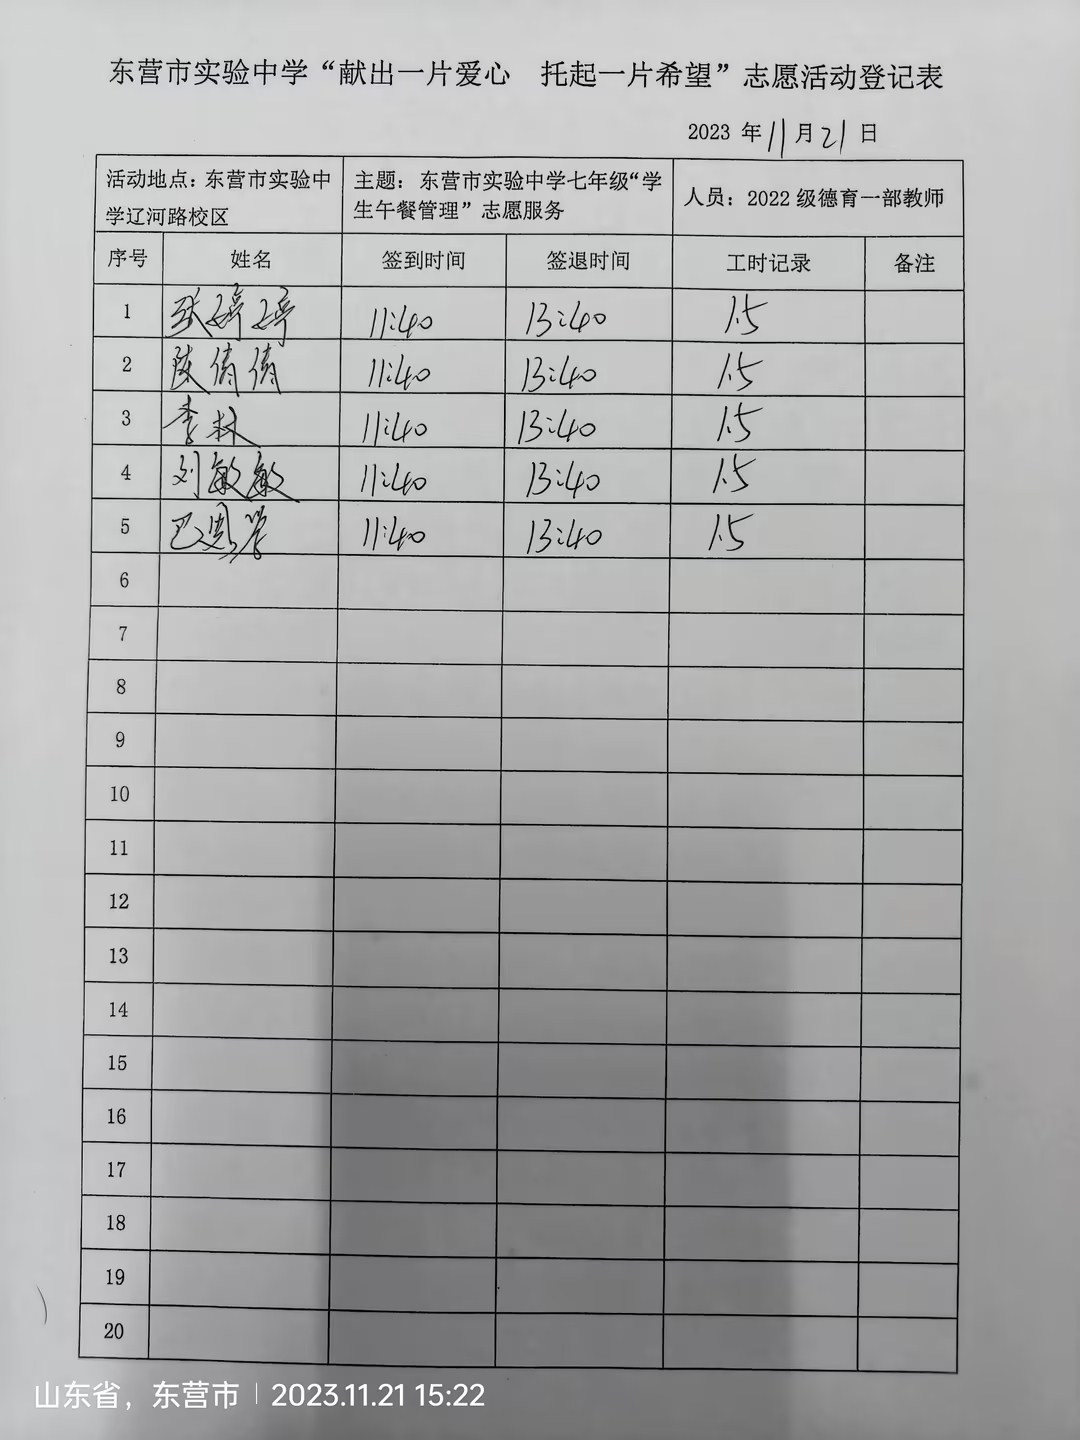 东营市实验中学“献出一片爱心 托起一片希望”志愿活动登记表
2023 年 11 月 21 日
活动地点：东营市实验中学辽河路校区 主题：东营市实验中学七年级“学生午餐管理”志愿服务 人员：2022 级德育一部教师
序号 姓名 签到时间 签退时间 工时记录 备注
1 张婷婷 11:40 13:40 1.5
2 陈倩倩 11:40 13:40 1.5
3 李林 11:40 13:40 1.5
4 刘敏敏 11:40 13:40 1.5
5 11:40 13:40 1.5
6
7
8
9
10
11
12
13
14
15
16
17
18
19
20
山东省，东营市 | 2023.11.21 15:22